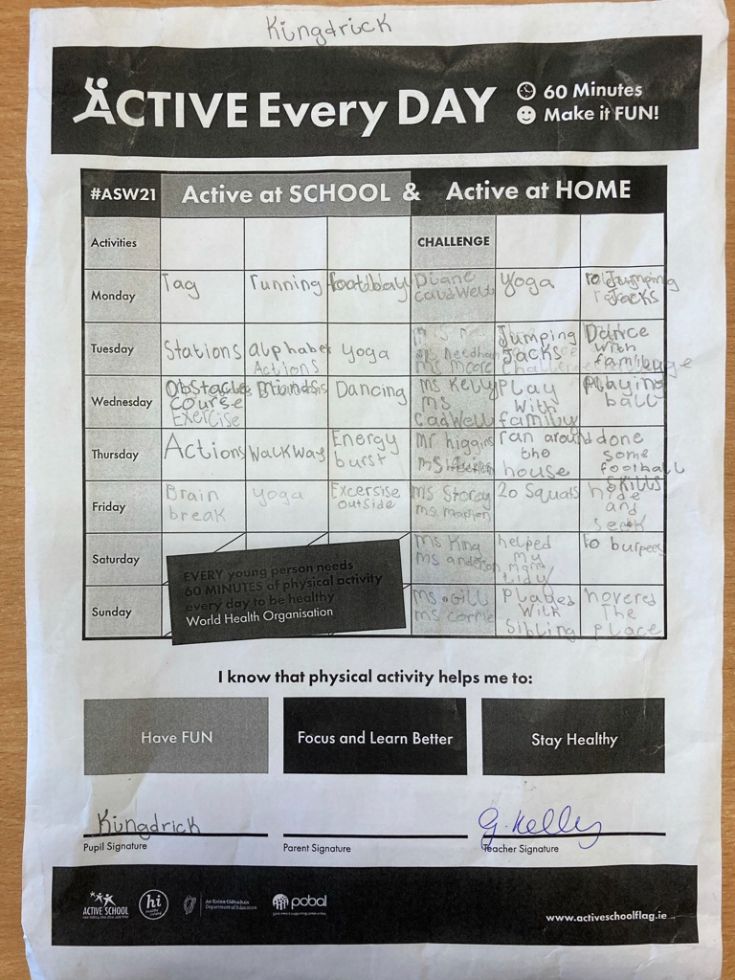 Kingdrick
ACTIVE Every DAY
60 Minutes
Make it FUN!
#ASW21 Active at SCHOOL & Active at HOME
Activities CHALLENGE
Monday Tag running football Diane Caldwell Yoga 10 Jumping Jacks
Tuesday Stations alphabet Actions yoga Ms Moore Jumping JACKS Dance with
Wednesday Obstacle course Exercise minds Dancing Ms Kelly Ms Cadwell Play With family playing ball
Thursday Actions Walkway Energy burst Mr higgins ran around the house done some football SKILLS
Friday Brain break yoga Excersise outside Ms Storey 20 Squats hide and seek
Saturday Ms King Ms anderson helped my mam tidy 10 burpees
Sunday Ms Gill Ms Corrie Played With Sibling hovered The place
EVERY young person needs
60 MINUTES of physical activity
every day to be healthy
World Health Organisation
I know that physical activity helps me to:
Have FUN
Focus and Learn Better
Stay Healthy
Kingdrick G. Kelly
Pupil Signature Parent Signature Teacher Signature
ACTIVE SCHOOL hi pobal
www.activeschoolflag.ie